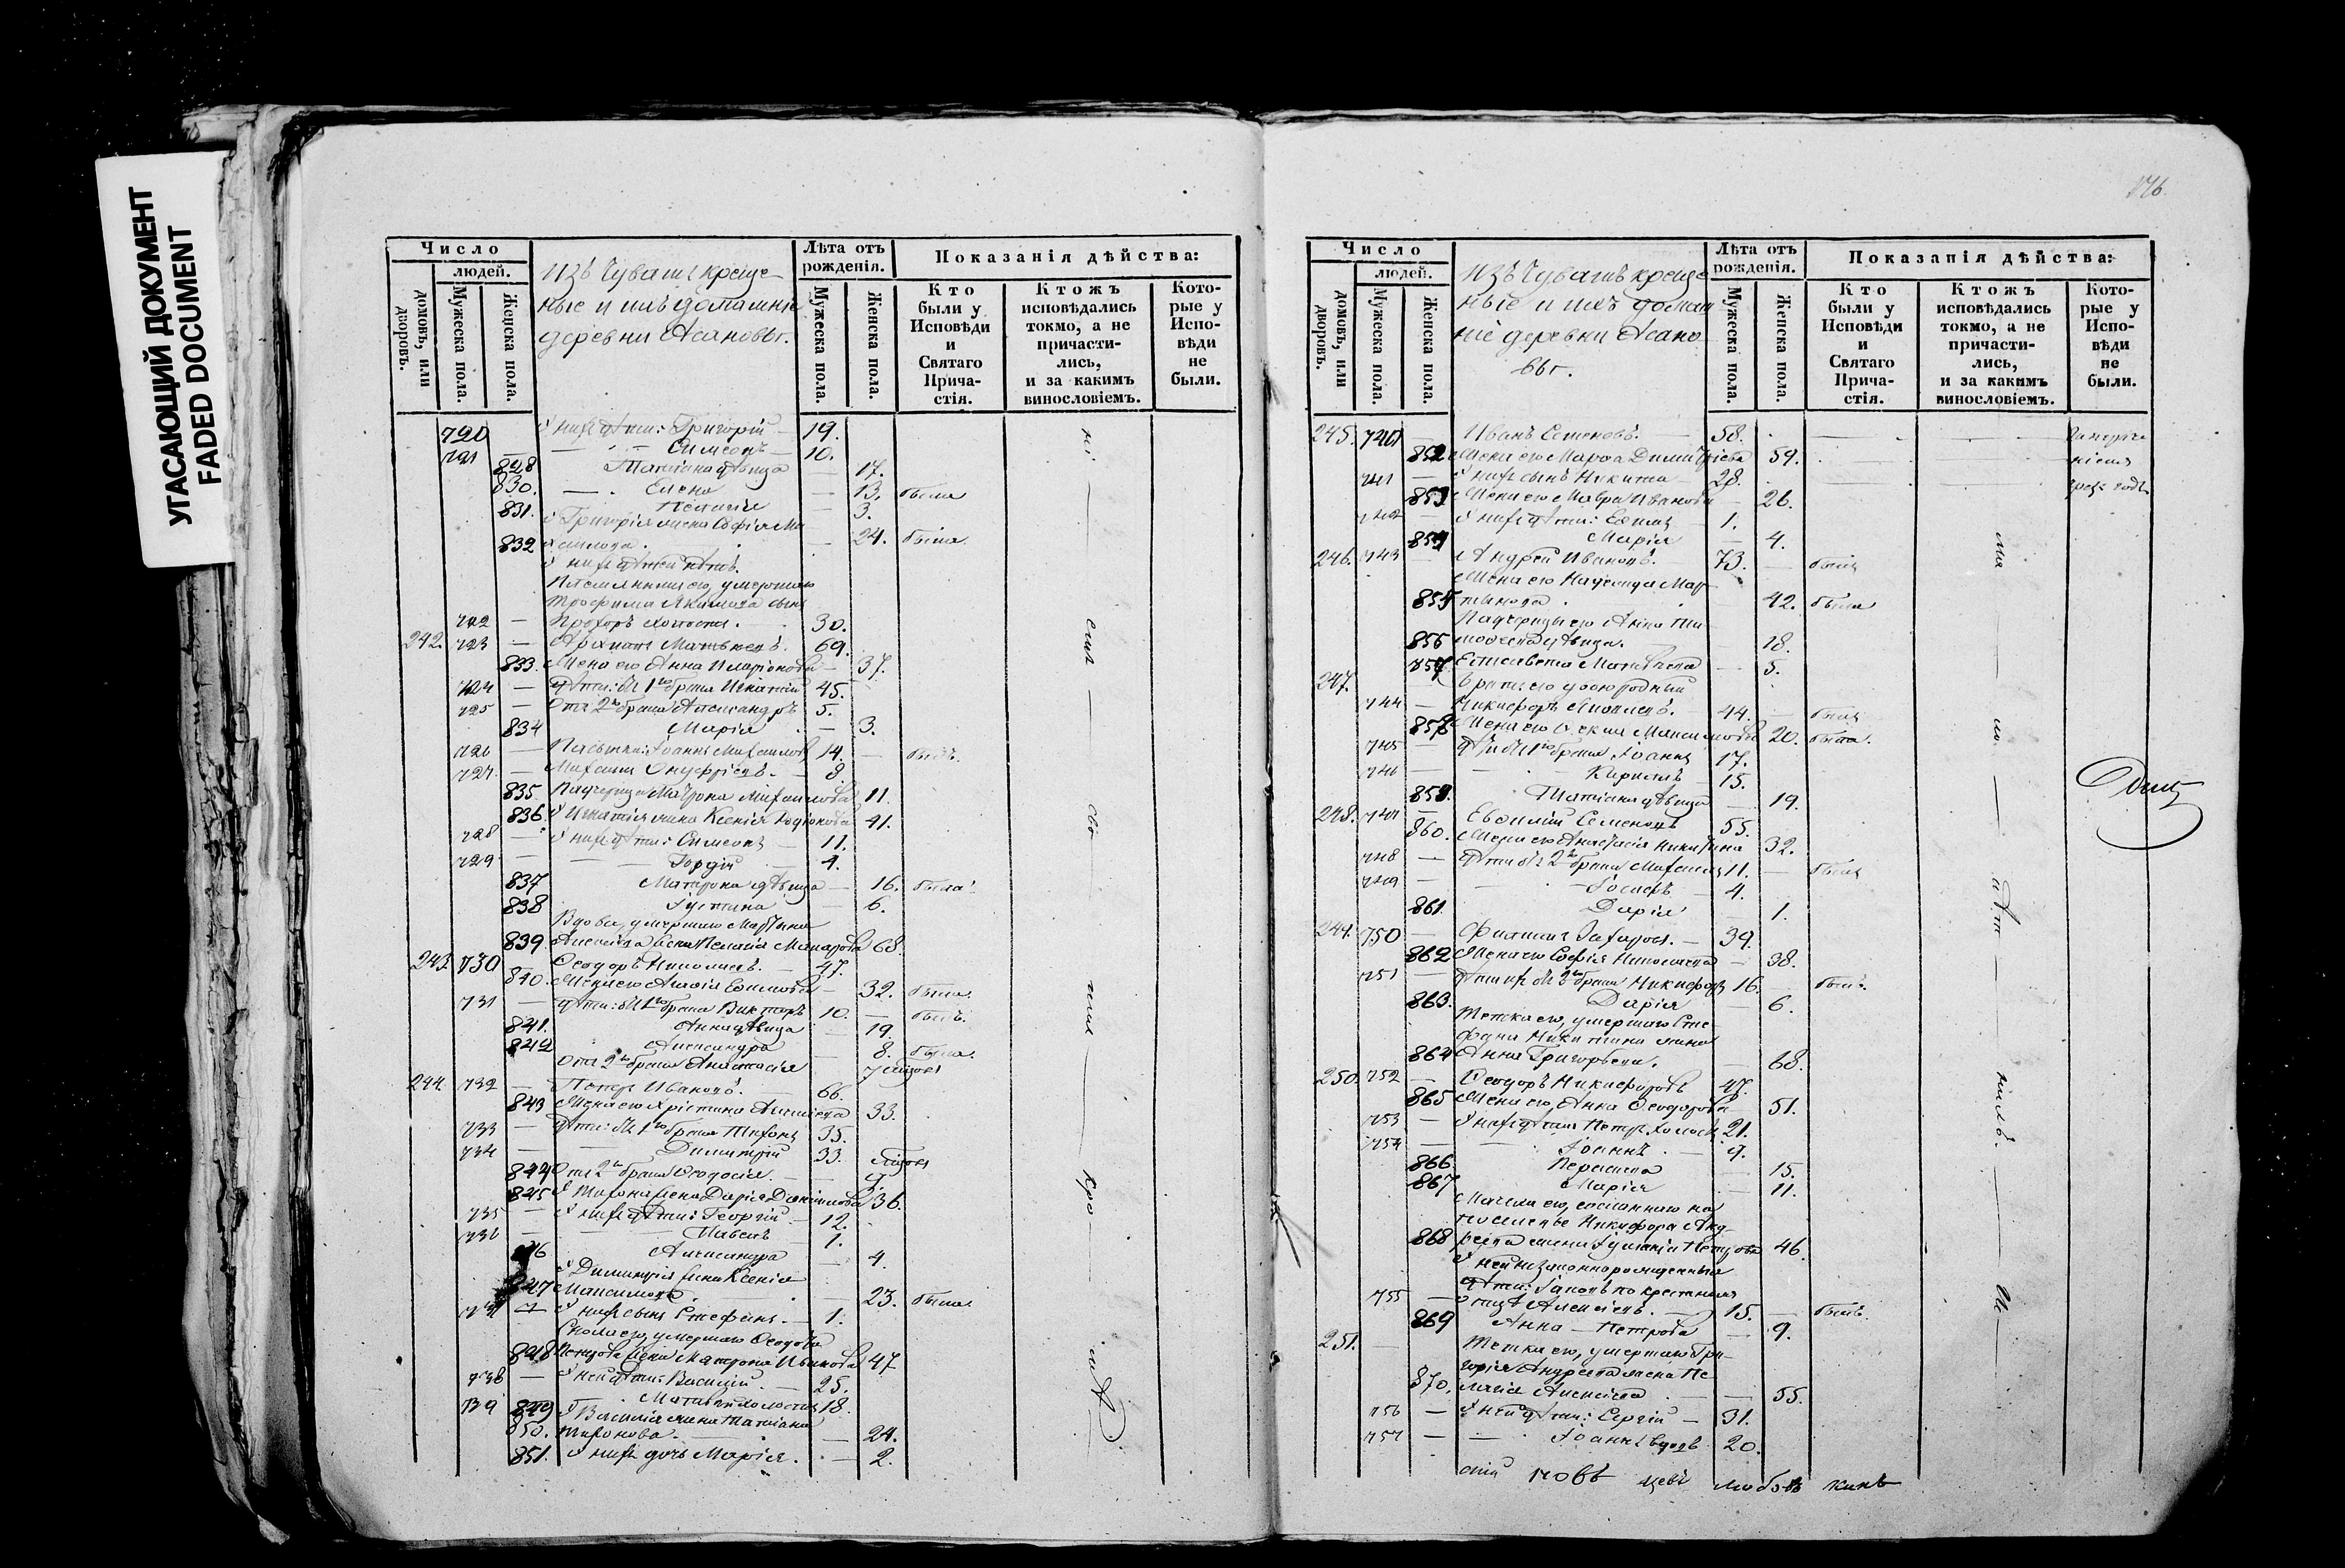 УГАСАЮЩИЙ ДОКУМЕНТ
FADED DOCUMENT
Число
людей.
домовъ, или дворовъ.
Мужеска пола.
Женска пола.
Изъ Чувашъ креще-
ные и ихъ домашніе
деревни Асановы.
Лѣта отъ рожденія.
Мужеска пола.
Женска пола.
Показанія дѣйства:
Кто были у Исповѣди и Святаго Прича-стія.
Ктожъ исповѣдались токмо, а не причасти-лись, и за какимъ винословіемъ.
Кото-рые у Испо-вѣди не были.
720 У нихъ дѣти: Григорій — 19.
721 — Симеонъ — 10.
828 Татіана дѣвица — 17.
830. — Елена — 13. была
831. Пелагія — 3.
У Григорія жена Софія Ми
832 хаилова. — 24. была
У нихъ дѣтей нѣтъ.
Племянникъ его, умершаго
Трофима Акимова сынъ
722 — Прохоръ холостъ. 30.
242. 723 — Матвѣевъ. 69.
833. Жена его Анна Иларіонова — 37.
724 — Дѣти: отъ 1го брака Игнатій 45.
725 — Отъ 2го брака Александръ 5.
834 Марія — 3.
726 — Пасынки: Іоаннъ Михайловъ 14. — былъ.
727. — Михаилъ Онуфріевъ. — 8.
835. Падчерица Матрона Михаилова 11.
836. У Игнатія жена Ксенія Родіонова 41.
728 — У нихъ дѣти: Симеонъ — 11.
729 — Гордій — 4.
837 Матрона дѣвица — 16. была
838 Іустина — 6.
Вдова, умершаго Мартина
839 Алексѣева жена Пелагія Макарова 68.
243. 730 Ѳеодоръ Николаевъ. — 47.
840. Жена его — 32. была
731 — Дѣти: отъ 1го брака Викторъ 10. — былъ.
841. Анна дѣвица — 19.
842 Александра — 8. была.
Отъ 2го брака Анастасія
244. 732 — Петръ Ивановъ. — 66.
843 Жена его Христина Алексѣева 33.
733 — Дѣти: отъ 1го брака Тихонъ 35.
734 — Димитрій 33.
844 Отъ 2го брака Ѳеодосія.
845 У Тихона жена Дарія Даниилова 36.
735 — У нихъ дѣти: Георгій — 12.
736 — Павелъ — 1.
Александра — 4.
У Димитрія жена Ксенія
847 Максимова. — 23. была
У нихъ сынъ Стефанъ. — 1.
умершаго Ѳеодора
848 Петрова жена Матрона Иванова 47
738 — У ней дѣти: Василій. — 25.
739 Матвѣй холостъ 18.
849 У Василія жена Татіана
850. Тихонова. — 24.
851. У нихъ дочь Марія. — 2.
Число
людей.
домовъ, или дворовъ.
Мужеска пола.
Женска пола.
Изъ Чувашъ креще
ные и ихъ домаш
ніе деревни Асано
вы.
Лѣта отъ рожденія.
Мужеска пола.
Женска пола.
Показанія дѣйства:
Кто были у Исповѣди и Святаго Прича-стія.
Ктожъ исповѣдались токмо, а не причасти-лись, и за какимъ винословіемъ.
Кото-рые у Испо-вѣди не были.
245. 740 Иванъ Семеновъ. — 58.
852 Жена его Марѳа Димитріева 59.
741 — У нихъ сынъ Никита — 28.
853 Жена его Мавра Иванова — 26.
742 — У нихъ дѣти: — 1.
854 Марія — 4.
246. 743 — Андрей Ивановъ. — 73. — былъ
Жена его Надежда Мар
855 тынова. — 42. была
Падчерицы его Анна Ти
856 моѳеева дѣвица. — 18.
857 Елисавета Матвѣева — 5.
247. Братъ его двоюродный
744 — Никифоръ — 44. — былъ
858 Жена его Максимова 20. была.
745 — Дѣти отъ 1го брака Іоаннъ 17.
746 — Кириллъ — 15.
859. Татіана дѣвица — 19.
248. 747 Евѳимій Семеновъ 55.
860. Жена его Анастасія Никитина 32.
748 — Дѣти отъ 2го брака Михаилъ 11. — былъ
749 — Іосифъ — 4.
861. Дарія — 1.
249. 750 — Филиппъ Захаровъ. — 39.
862 Жена его Софія Николаева — 38.
751 — Дѣти ихъ отъ 2го брака Никифоръ 16. былъ.
863. Дарія — 6.
Тетка его, умершаго
Никитина жена
864 Анна Григорьева. — 68.
250. 752 — Ѳеодоръ Никифоровъ 47.
865 Жена его, Анна Ѳеодорова 51.
753 — У нихъ дѣти Петръ холостъ 21.
754 — Іоаннъ. — 9.
866. — 15.
867 Марія — 11.
Мачиха его, сосланнаго на
поселенье Никифора Анд
868 реева жена Іуліанія Петрова 46.
У ней незаконнорожденныя
дѣти: Іаковъ по крестномъ
755 — отцѣ Алексѣевъ. — 15. — былъ.
869 Анна — Петрова — 9.
251. — Тетка его, умершаго Гри-
горія Андреева жена Пе
870. лагія Алексѣева — 55.
756 — У ней дѣти: Сергій — 31.
757 — Іоаннъ вдовъ 20.